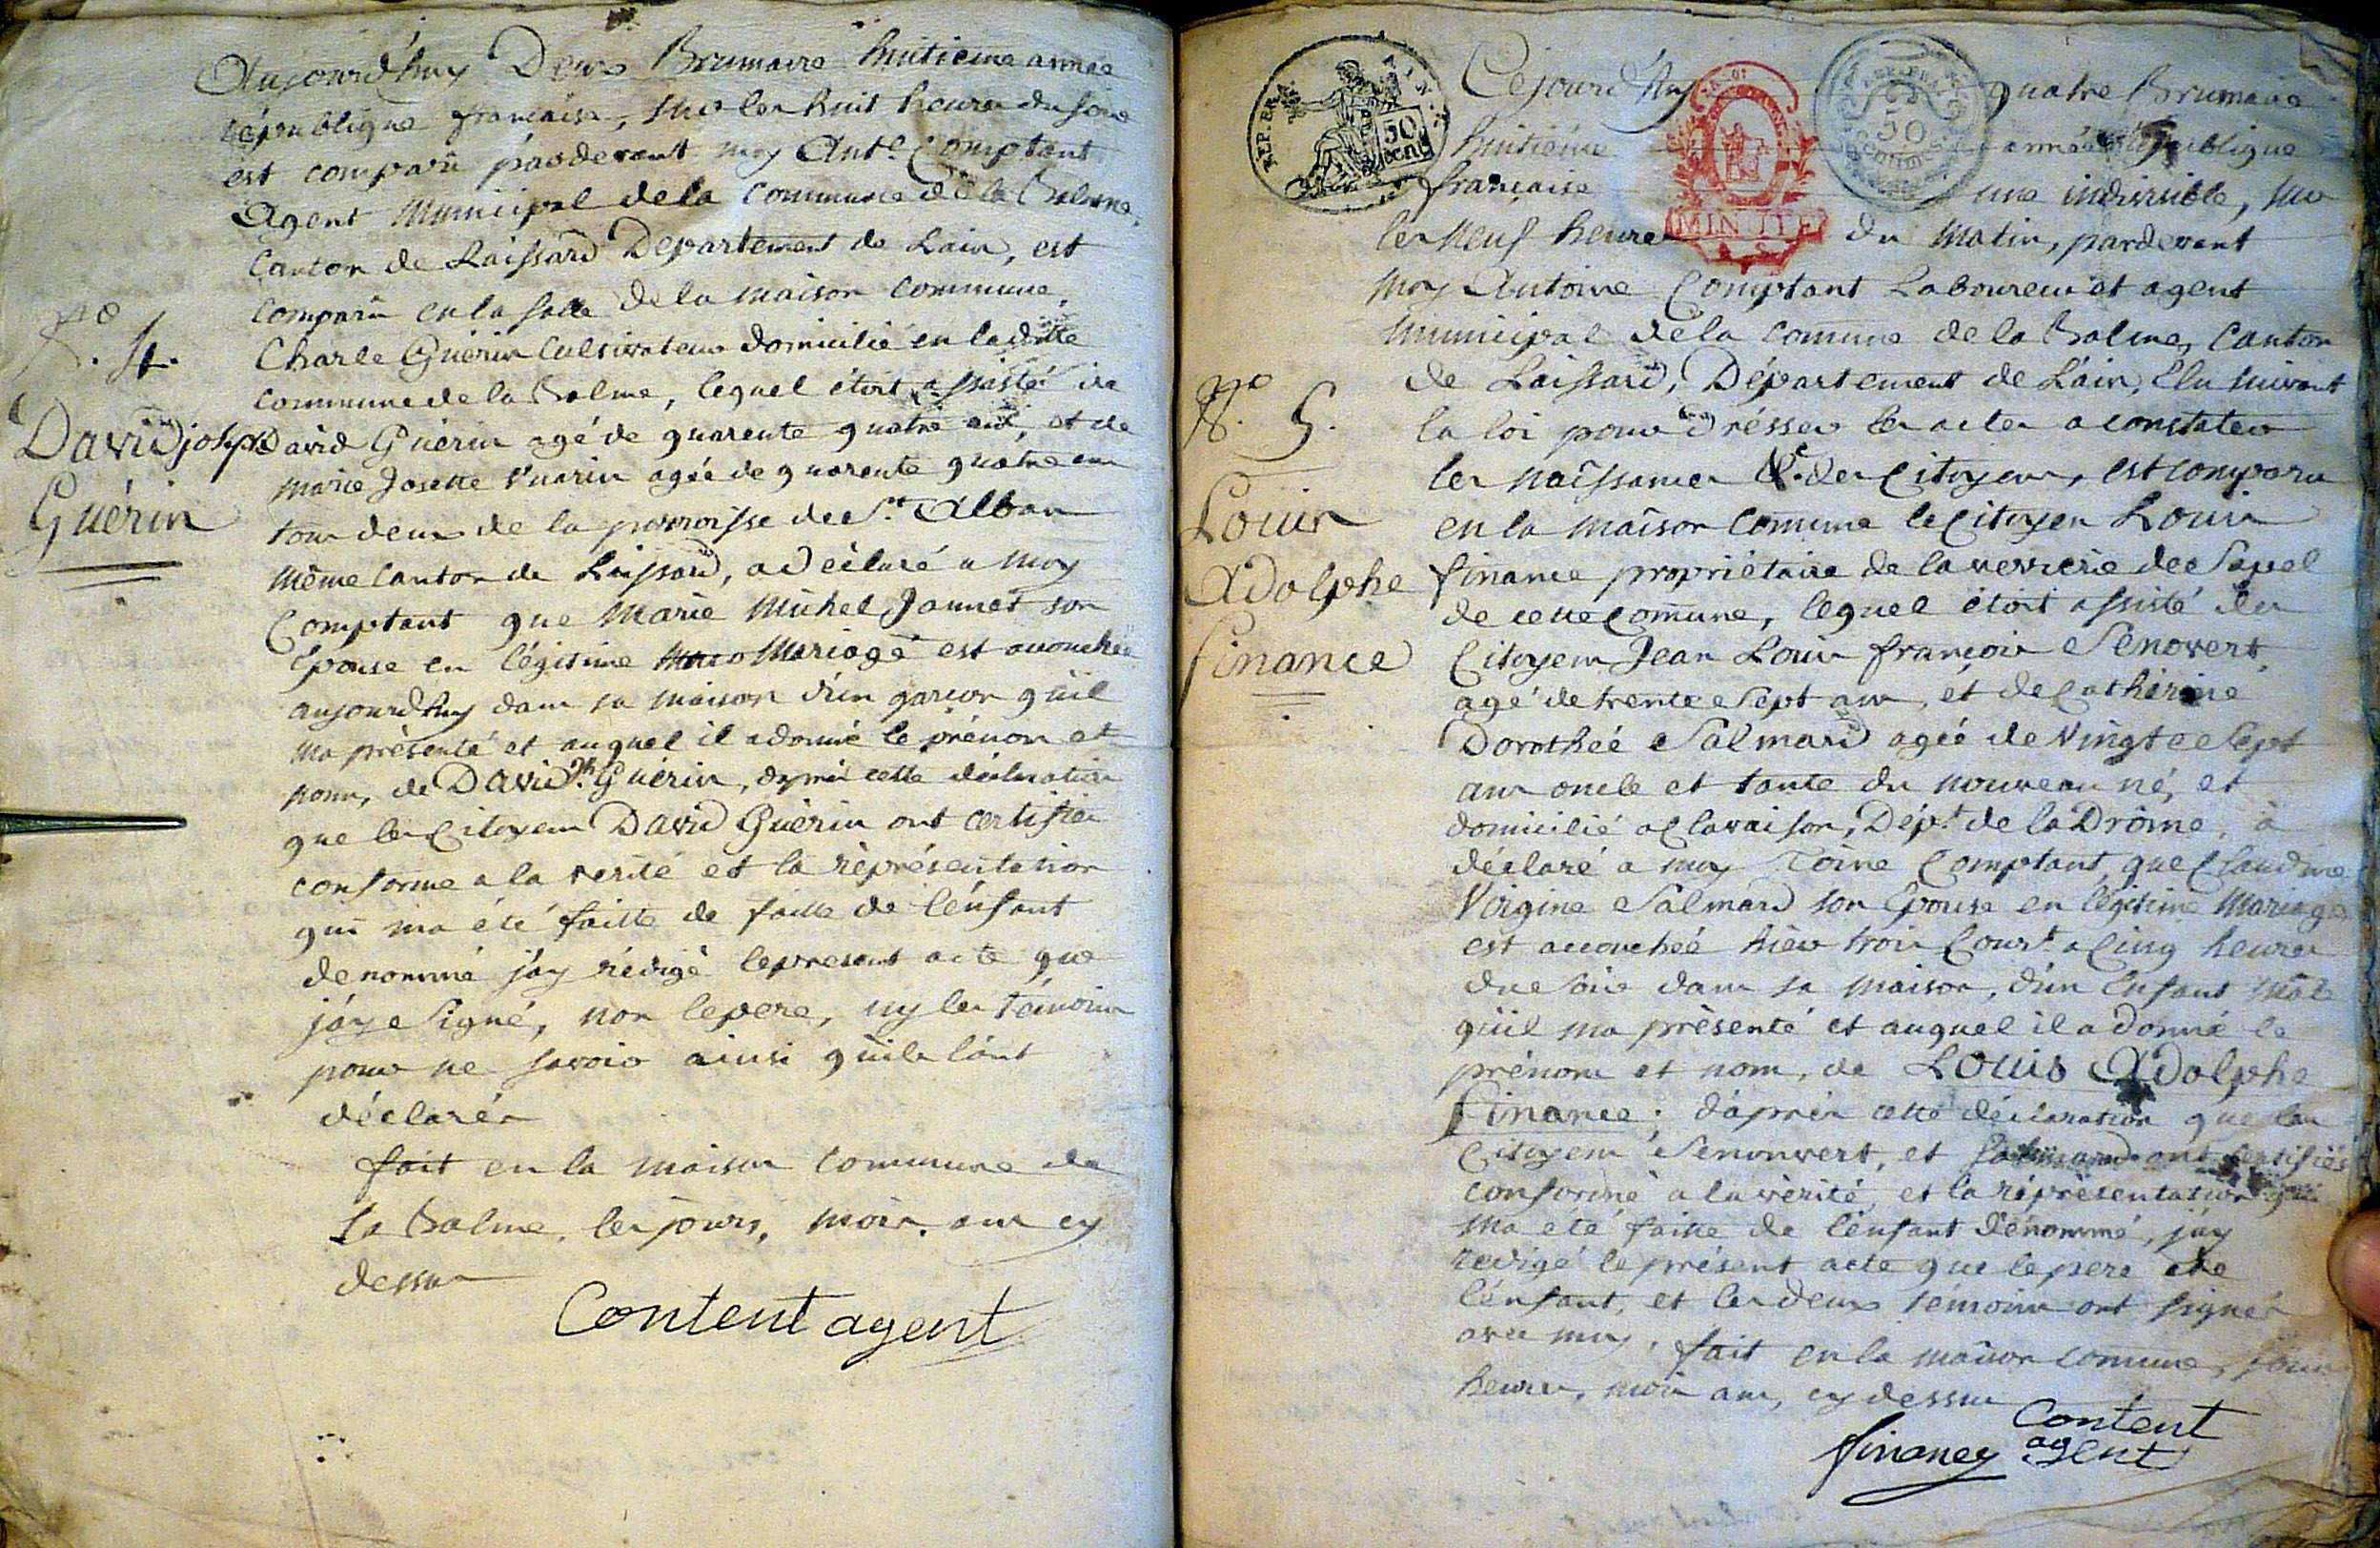 Aujourd'huy Deux Brumaire huitieme année
république française, sur les huit heures du soir
est comparu pardevant moy Ant.e Comptant
Agent Municipal de la Commune de la Balme,
Canton de Leissard Departement de Lain, est
Comparu en la salle de la maison commune,
Charle Guérin Cultivateur domicilié en la ditte
commune de la Balme, lequel étoit assisté de
N.o 4.
David joseph
Guérin
David Guérin agé de quarente quatre ans, et de
marie Josette Vuarin agée de quarente quatre ans
tous deux de la parroisse de S.t Alban
même Canton de Leissard, a déclaré a moy
Comptant que Marie Michel Jannet son
Epouse en légitime Mariage est acouchée
aujourd'huy dans sa maison d'un garçon qu'il
ma présenté et auquel il a donné le prénom et
nom, de David J.ph Guérin, dáprés cette déclaration
que les Citoyens David Guérin ont certifiés
conforme a la verité et la réprésentation
qui ma été faitte de faitte de l'énfant
denommé j'áy rédigé le present acte que
j'áy Signé, non le pere, ny les témoins
pour ne savoir ainsi qu'ils l'ont
déclarés
fait en la maison commune de
La Balme, les jours, mois, ans cy
dessus
Content agent
REP. FRA.
50
cent
MINUTE
50
centimes
Cejourd'huy quatre Brumaire
huitiéme année république
française une indivisible, sur
les Neuf heures du Matin, pardevant
moy Antoine Comptant Laboureur et agent
Municipal de la Comune de la Balme, Canton
de Leissard, Département de Láin, Elu suivant
la loi pour drésser les actes a constater
N.o 5.
Louis
Adolphe
finance
les naissances &.c des Citoyens, est comparu
en la maison Comune le Citoyen Louis
finance propriétaire de la verrerie de
de cette Comune, lequel étoit assisté des
Citoyens Jean Louis françois Senovert,
agé de trente Sept ans, et de Catherine
Dorothéé Salmard agéé de Vingt Sept
ans oncle et tante du nouveau né, et
domicilié a Clavaison, Dép.t de la Drôme, à
déclaré a moy Toine Comptant, que Claudine
Virgine Salmard son Epouse en légitime Mariage
est accouchéé hiér trois Cour.t a Cinq heures
du Soir dans sa maison, d'un Enfant Mâle
qu'il ma présenté et auquel il a donné le
prénom et nom, de Louis Adolphe
Finance; dáprés cette déclaration que les
Citoyens Senonvert, et Salmard ont certifiés
conforme a la vérité, et la réprésentation qui
ma été faitte de l'énfant dénommé, j'áy
redigé le présent acte que le pere de
l'énfant, et les deux témoins ont signés
avec moy, fait en la maison comune, jour
heures, mois ans, cy dessus
Content
agent
finance